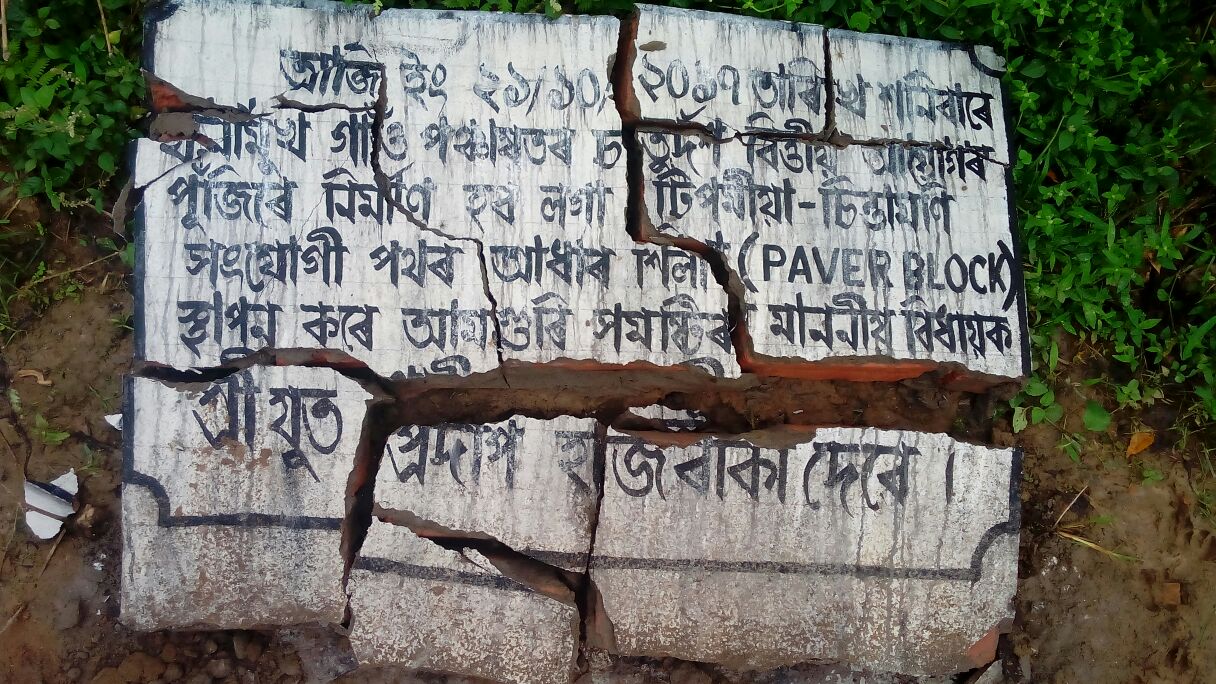 আজি ইং ২১/১০/২০১৭ তাৰিখ শনিবাৰে
যামীমুখ গাওঁ পঞ্চায়তৰ চতুৰ্দশ বিত্তীয় আয়োগৰ
পূঁজিৰে নিৰ্মাণ হব লগা টিপমীয়া-চিন্তামণি
সংযোগী পথৰ আধাৰ শিলা (PAVER BLOCK)
স্থাপন কৰে আমগুৰি সমষ্টিৰ মাননীয় বিধায়ক
শ্ৰীযুত প্ৰদীপ হাজৰিকা দেৱে।